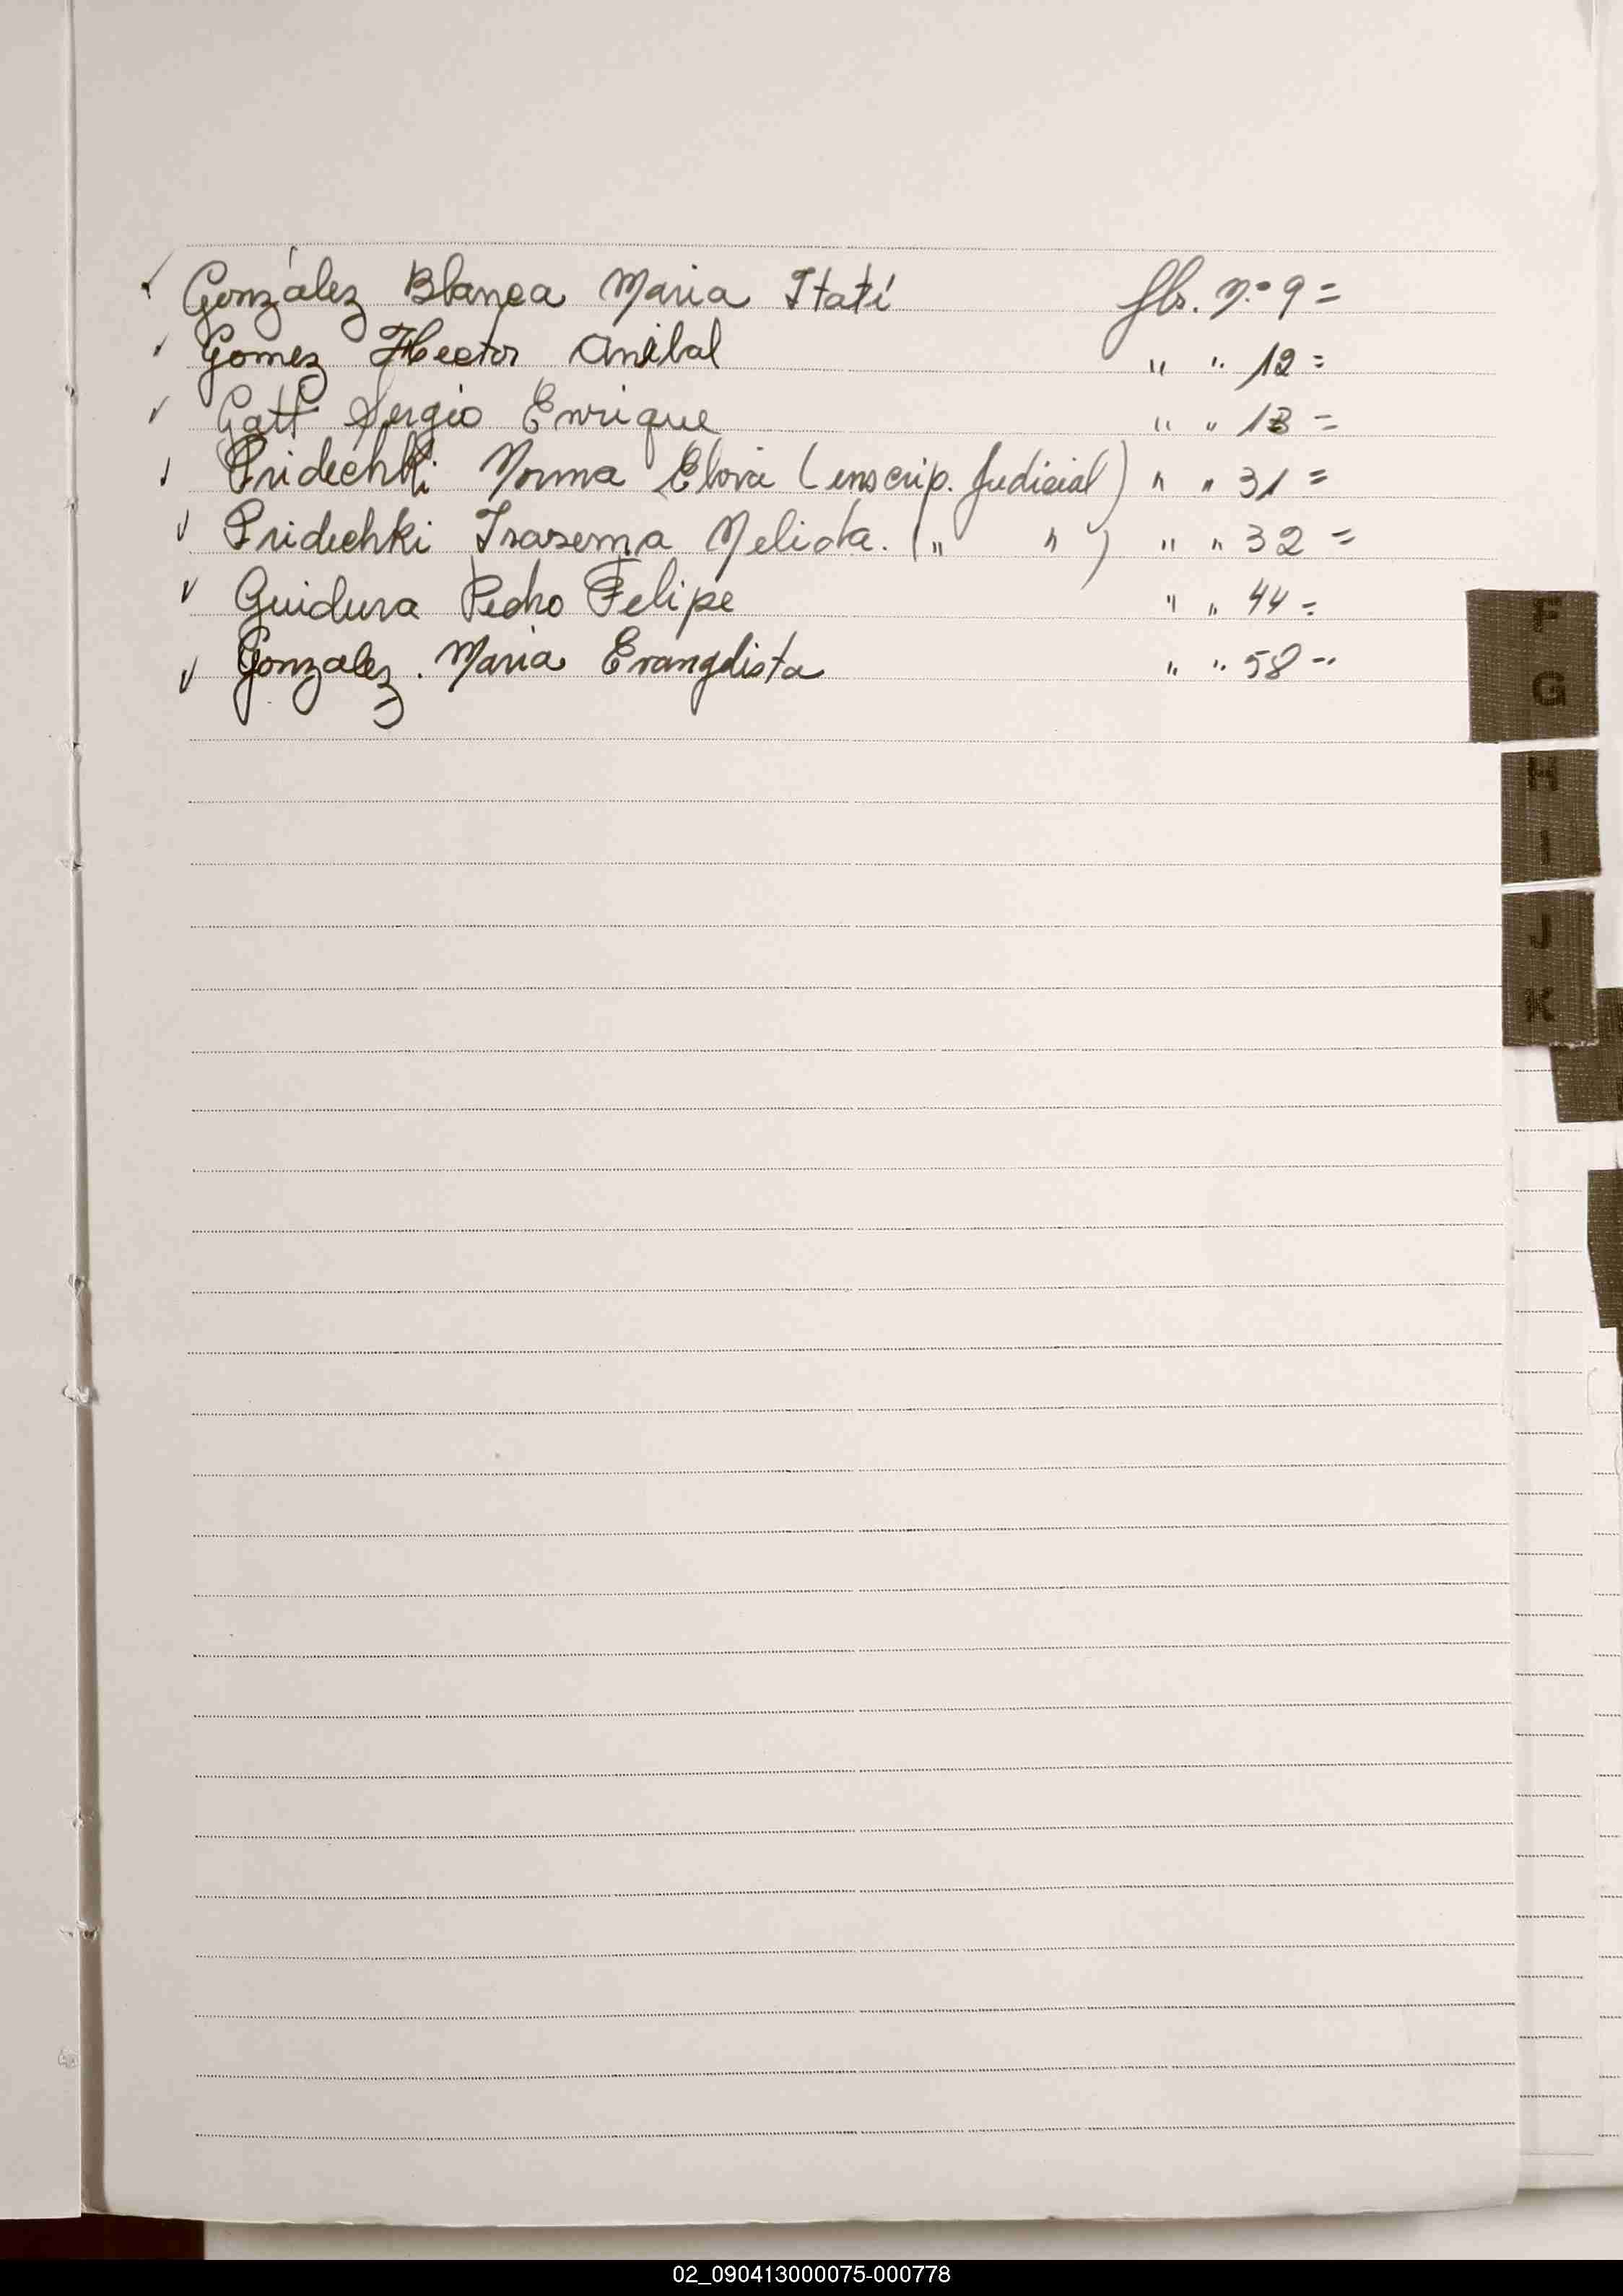 ✓ González Blanca Maria Itatí fls. n.º 9 =
✓ Gomez Hector Anibal " " 12 =
✓ Gatt Sergio Enrique " " 13 =
✓ Pridechki Norma (inscrip. Judicial) " " 31 =
✓ Pridechki Irasema Nelida. ( " " ) " " 32 =
✓ Guidura Pedro Felipe " " 44 =
✓ Gonzalez. Maria Evangelista " " 58 --
F
G
H
I
J
K
02_090413000075-000778